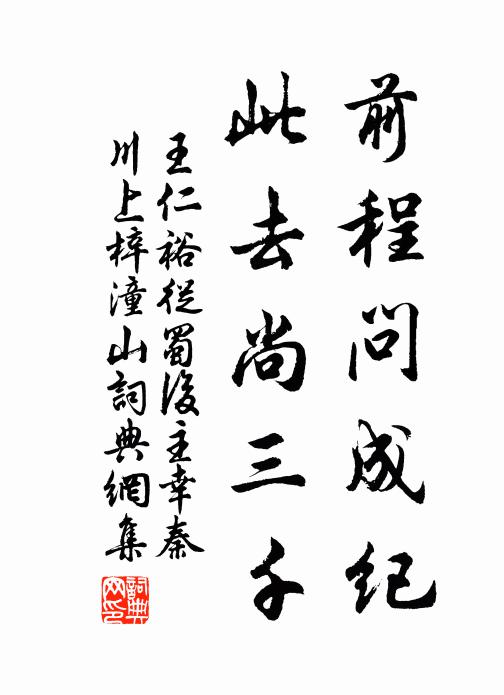 前程問成紀
此去尚三千
王仁裕從蜀後主幸秦
川上梓潼山詞典網集
詞典网印